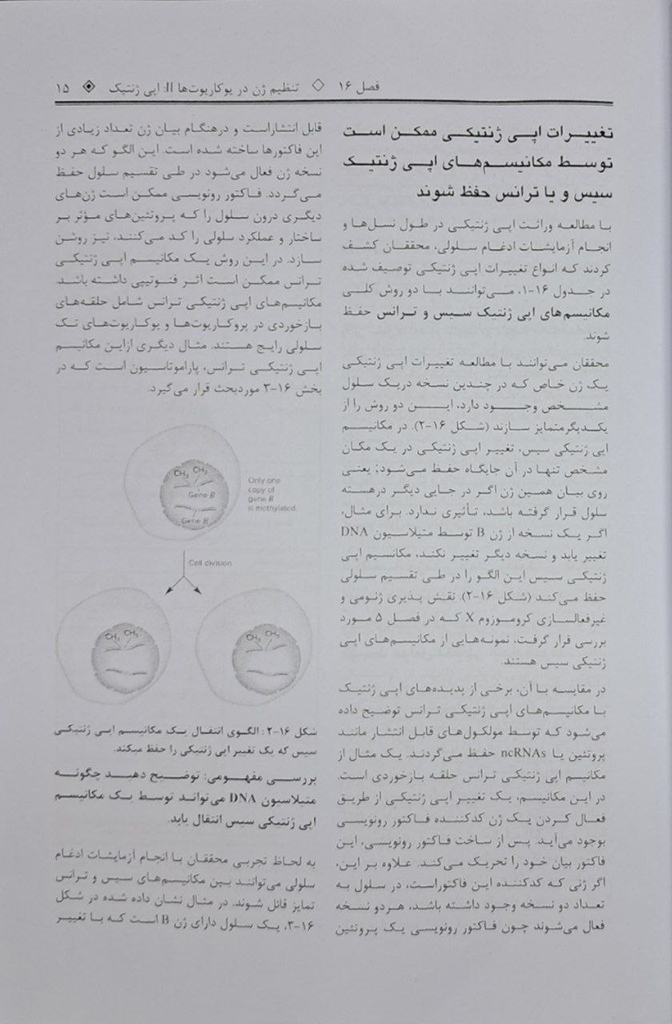 فصل ۱۶ ◇ تنظیم ژن در یوکاریوت‌ها II: اپی ژنتیک ◈ ۱۵
تغییرات اپی ژنتیکی ممکن است
توسط مکانیسم‌های اپی ژنتیک
سیس و یا ترانس حفظ شوند
با مطالعه وراثت اپی ژنتیکی در طول نسل‌ها و
انجام آزمایشات ادغام سلولی، محققان کشف
کردند که انواع تغییرات اپی ژنتیکی توصیف شده
در جدول ۱۶-۱، می‌توانند با دو روش کلی
مکانیسم‌های اپی ژنتیک سیس و ترانس حفظ
شوند.
محققان می‌توانند با مطالعه تغییرات اپی ژنتیکی
یک ژن خاص که در چندین نسخه دریک سلول
مشخص وجود دارد، این دو روش را از
یکدیگرمتمایز سازند (شکل ۱۶-۲). در مکانیسم
اپی ژنتیکی سیس، تغییر اپی ژنتیکی در یک مکان
مشخص تنها در آن جایگاه حفظ می‌شود؛ یعنی
روی بیان همین ژن اگر در جایی دیگر درهسته
سلول قرار گرفته باشد، تأثیری ندارد. برای مثال،
اگر یک نسخه از ژن B توسط متیلاسیون DNA
تغییر یابد و نسخه دیگر تغییر نکند، مکانسیم اپی
ژنتیکی سیس این الگو را در طی تقسیم سلولی
حفظ می‌کند (شکل ۱۶-۲). نقش پذیری ژنومی و
غیرفعالسازی کروموزوم X که در فصل ۵ مورد
بررسی قرار گرفت، نمونه‌هایی از مکانیسم‌های اپی
ژنتیکی سیس هستند.
در مقایسه با آن، برخی از پدیده‌های اپی ژنتیک
با مکانیسم‌های اپی ژنتیکی ترانس توضیح داده
می‌شود که توسط مولکول‌های قابل انتشار مانند
پروتئین یا ncRNAs حفظ می‌گردند. یک مثال از
مکانیسم اپی ژنتیکی ترانس حلقه بازخوردی است.
در این مکانیسم، یک تغییر اپی ژنتیکی از طریق
فعال کردن یک ژن کدکننده فاکتور رونویسی
بوجود می‌آید. پس از ساخت فاکتور رونویسی، این
فاکتور بیان خود را تحریک می‌کند. علاوه بر این،
اگر ژنی که کدکننده این فاکتوراست، در سلول به
تعداد دو نسخه وجود داشته باشد، هردو نسخه
فعال می‌شوند چون فاکتور رونویسی یک پروتئین
قابل انتشاراست و درهنگام بیان ژن تعداد زیادی از
این فاکتورها ساخته شده است. این الگو که هر دو
نسخه ژن فعال می‌شود در طی تقسیم سلول حفظ
می‌گردد. فاکتور رونویسی ممکن است ژن‌های
دیگری درون سلول را که پروتئین‌های مؤثر بر
ساختار و عملکرد سلولی را کد می‌کنند، نیز روشن
سازد. در این روش یک مکانیسم اپی ژنتیکی
ترانس ممکن است اثر فنوتیپی داشته باشد.
مکانیسم‌های اپی ژنتیکی ترانس شامل حلقه‌های
بازخوردی در پروکاریوت‌ها و یوکاریوت‌های تک
سلولی رایج هستند. مثال دیگری ازاین مکانیسم
اپی ژنتیکی ترانس، پاراموتاسیون است که در
بخش ۱۶-۳ موردبحث قرار می‌گیرد.
CH₃ CH₃
Gene B
Gene B
Only one
copy of
gene B
is methylated.
Cell division
CH₃ CH₃
CH₃ CH₃
شکل ۱۶-۲: الگوی انتقال یک مکانیسم اپی ژنتیکی
سیس که یک تغییر اپی ژنتیکی را حفظ میکند.
بررسی مفهومی: توضیح دهید چگونه
متیلاسیون DNA می‌تواند توسط یک مکانیسم
اپی ژنتیکی سیس انتقال یابد.
به لحاظ تجربی محققان با انجام آزمایشات ادغام
سلولی می‌توانند بین مکانیسم‌های سیس و ترانس
تمایز قائل شوند. در مثال نشان داده شده در شکل
۱۶-۳، یک سلول دارای ژن B است که با تغییر